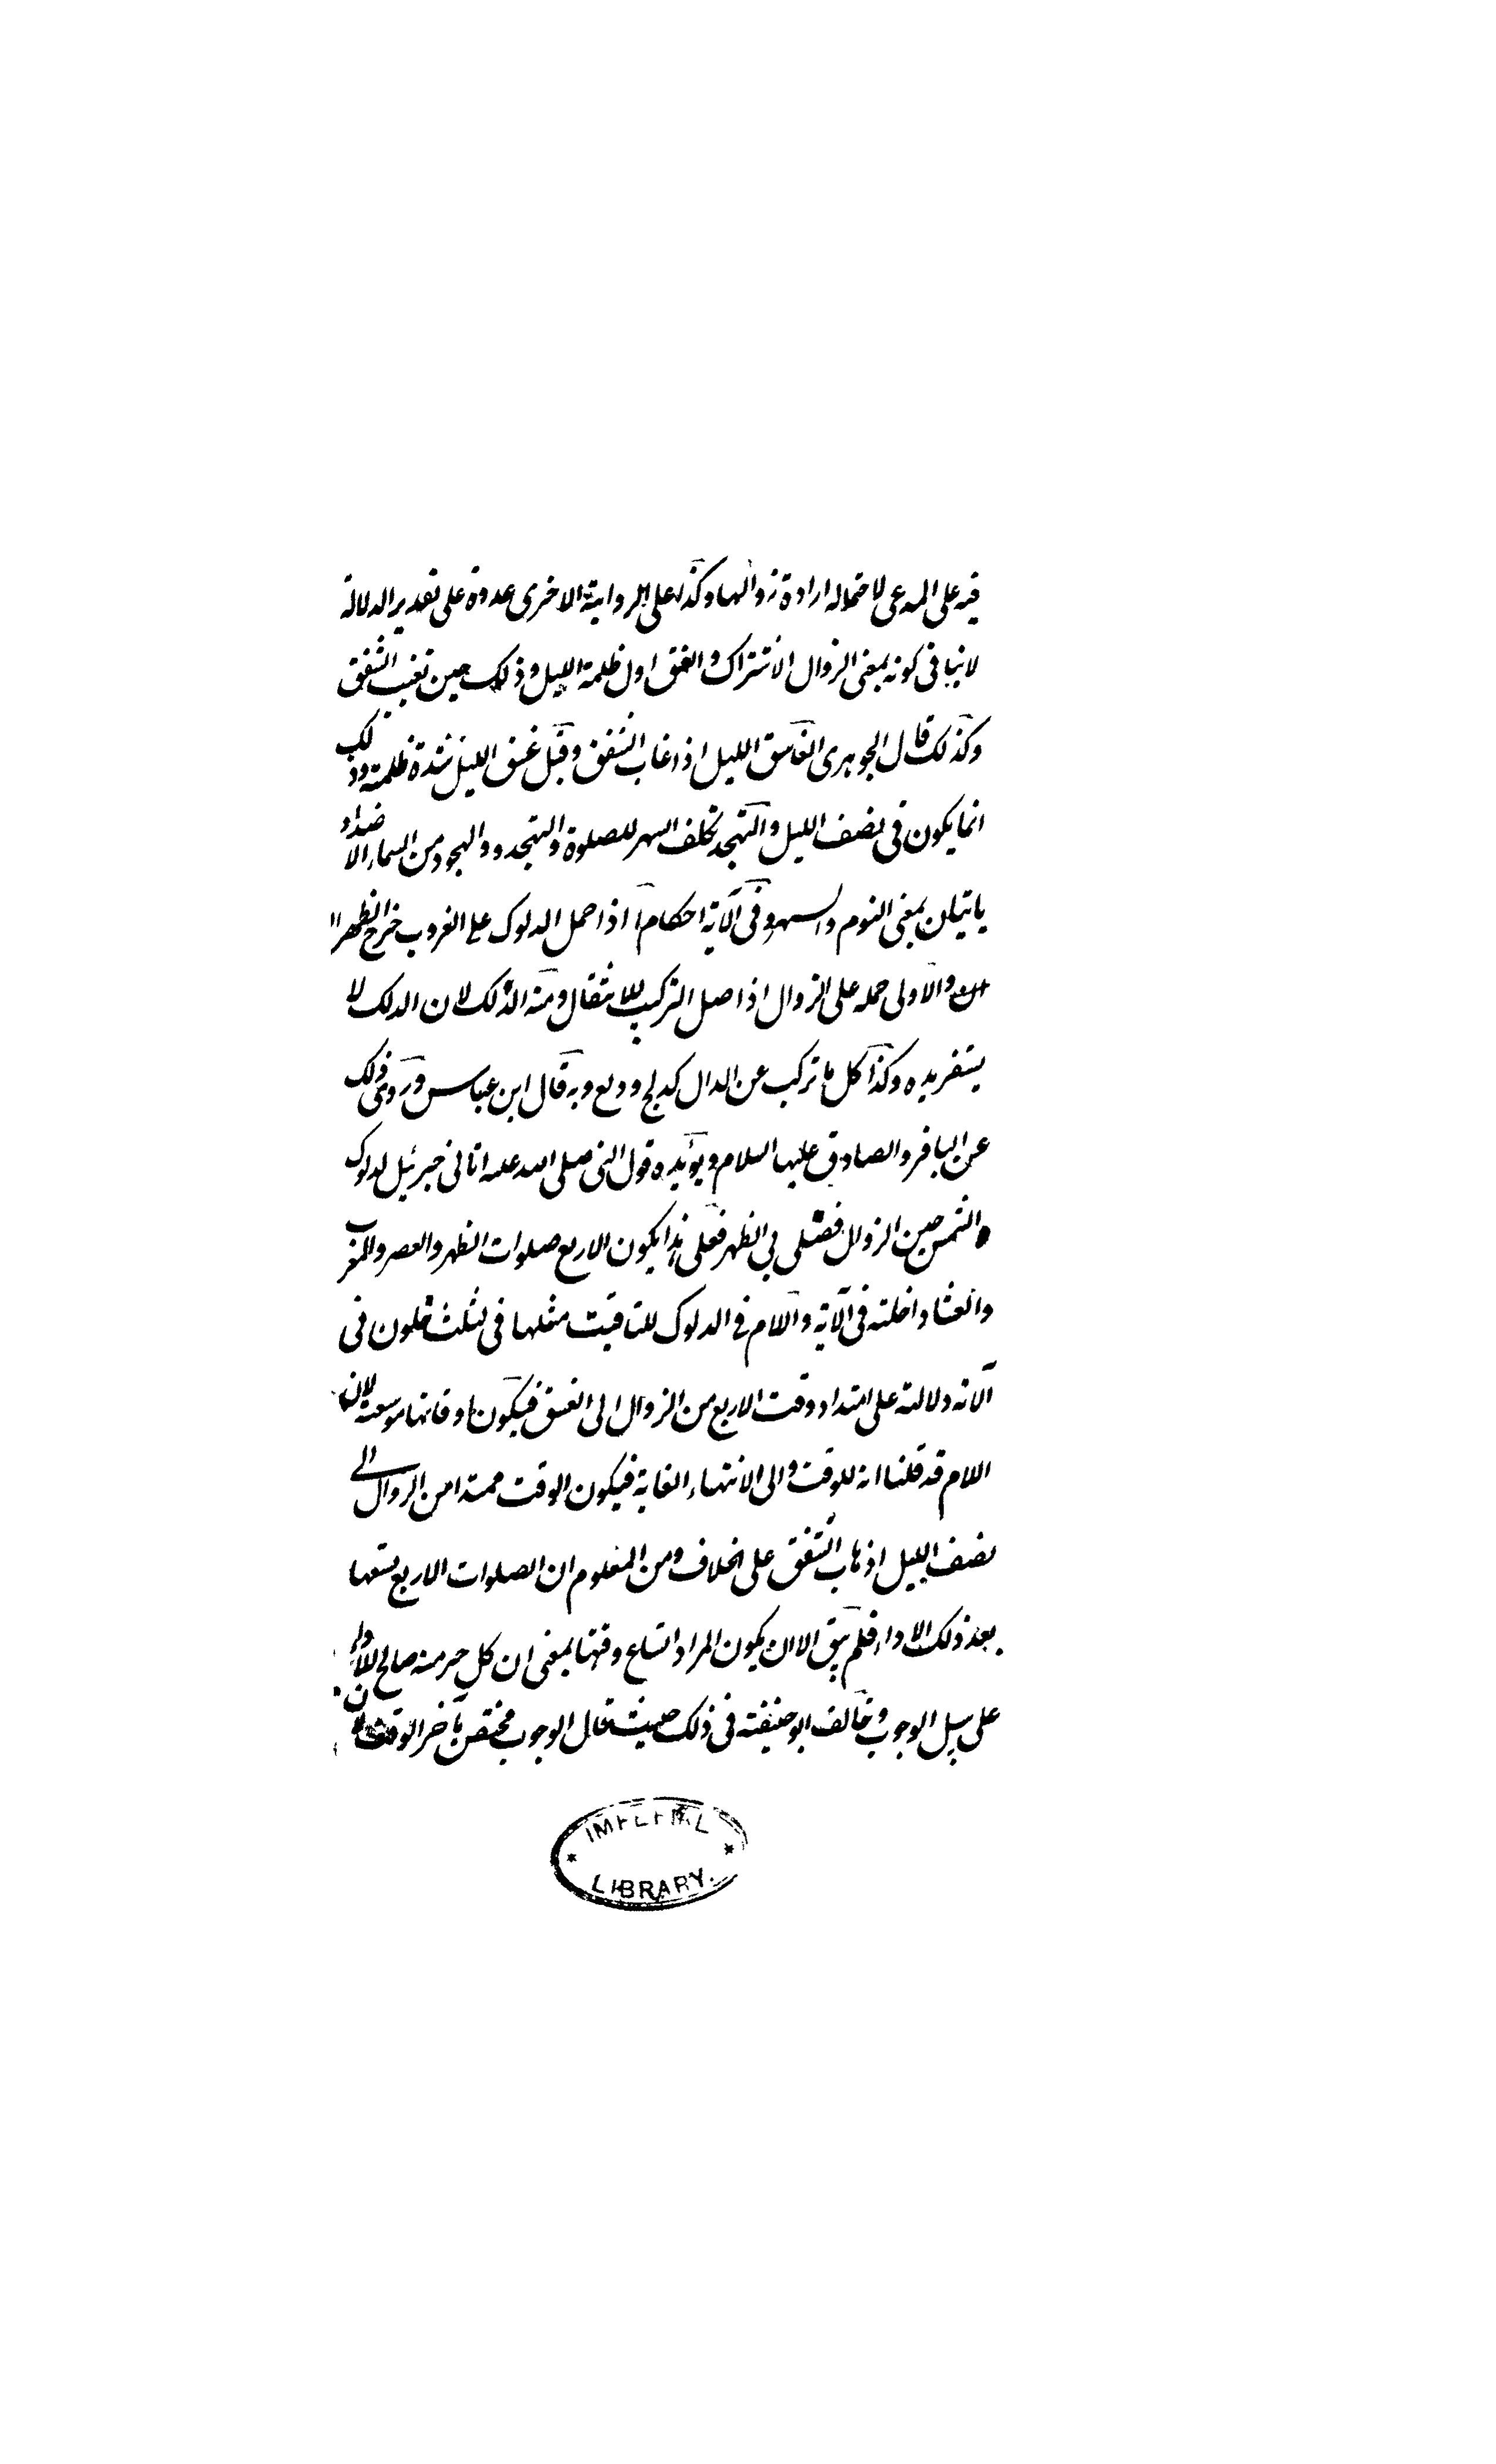 فيه على المدعى لاحتماله ارادة زوالها وكذا على الرواية الاخرى عدوة على تقدير الدلالة
لا ينافى كونه بمعنى الزوال الاشتراك والغسق اول ظلمة الليل وذلك حين تغيب الشفق
وكذلك قال الجوهرى الغاسق الليل اذا غاب الشفق وقيل غسق الليل شدة ظلمته وذلك
انما يكون فى نصف الليل والتهجد تكلف السهر للصلوة والتهجد والهجود من اسماء الاضداد
ياتيان بمعنى النوم والسهر وفى الآية احكام ا اذا حمل الدلوك على الغروب خرج الظهر
والاولى حمله على الزوال اذ اصل التركيب للانتقال ومنه الدلك لان الدلك لا
يستقر يده وكذا كل ما تركب عن الدال كدلج ودلع وبه قال ابن عباس وروى ذلك
عن الباقر والصادق عليها السلام ويؤيده قول النبى صلى الله عليه اتانى جبرئيل لدلوك
الشمس حين الزوال فصلى بى الظهر فعلى هذا يكون الاربع صلوات الظهر والعصر والمغرب
والعشا داخلته فى الآية واللام فى الدلوك للتاقيت مثلها فى لثلث خلون فى
الآية دلالته على امتداد وقت الاربع من الزوال الى الغسق فيكون اوقاتها موسعة لان
اللام قد قلنا انه للوقت والى الانتهاء الغاية فيكون الوقت ممتدا من الزوال الى
نصف الليل او ذهاب الشفق على الخلاف ومن المعلوم ان الصلوات الاربع يسعها
بعد ذلك الاداء فلم يبق الا ان يكون المراد اتساع وقتها بمعنى ان كل جزء منه صالح للاداء
على سبيل الوجوب وخالف ابو حنيفته فى ذلك حيث قال الوجوب مختص بآخر الوقت
IMPERIAL
LIBRARY.